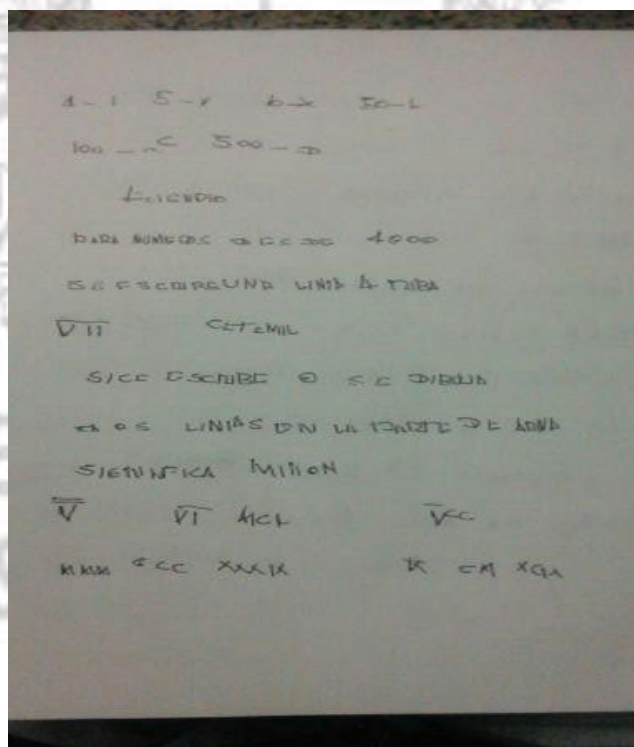 1 - I 5 - V 10 - X 50 - L
100 - C 500 - D
PARA NUMEROS DESDE 1000
SE ESCRIBE UNA LINIA ARRIBA
VII SETEMIL
SI SE ESCRIBE O SE DIBUJA
DOS LINIAS EN LA PARTE DE
SIGNIFICA MILLON
V VI MCL VCC
MMM CCC XXXIX IX CM